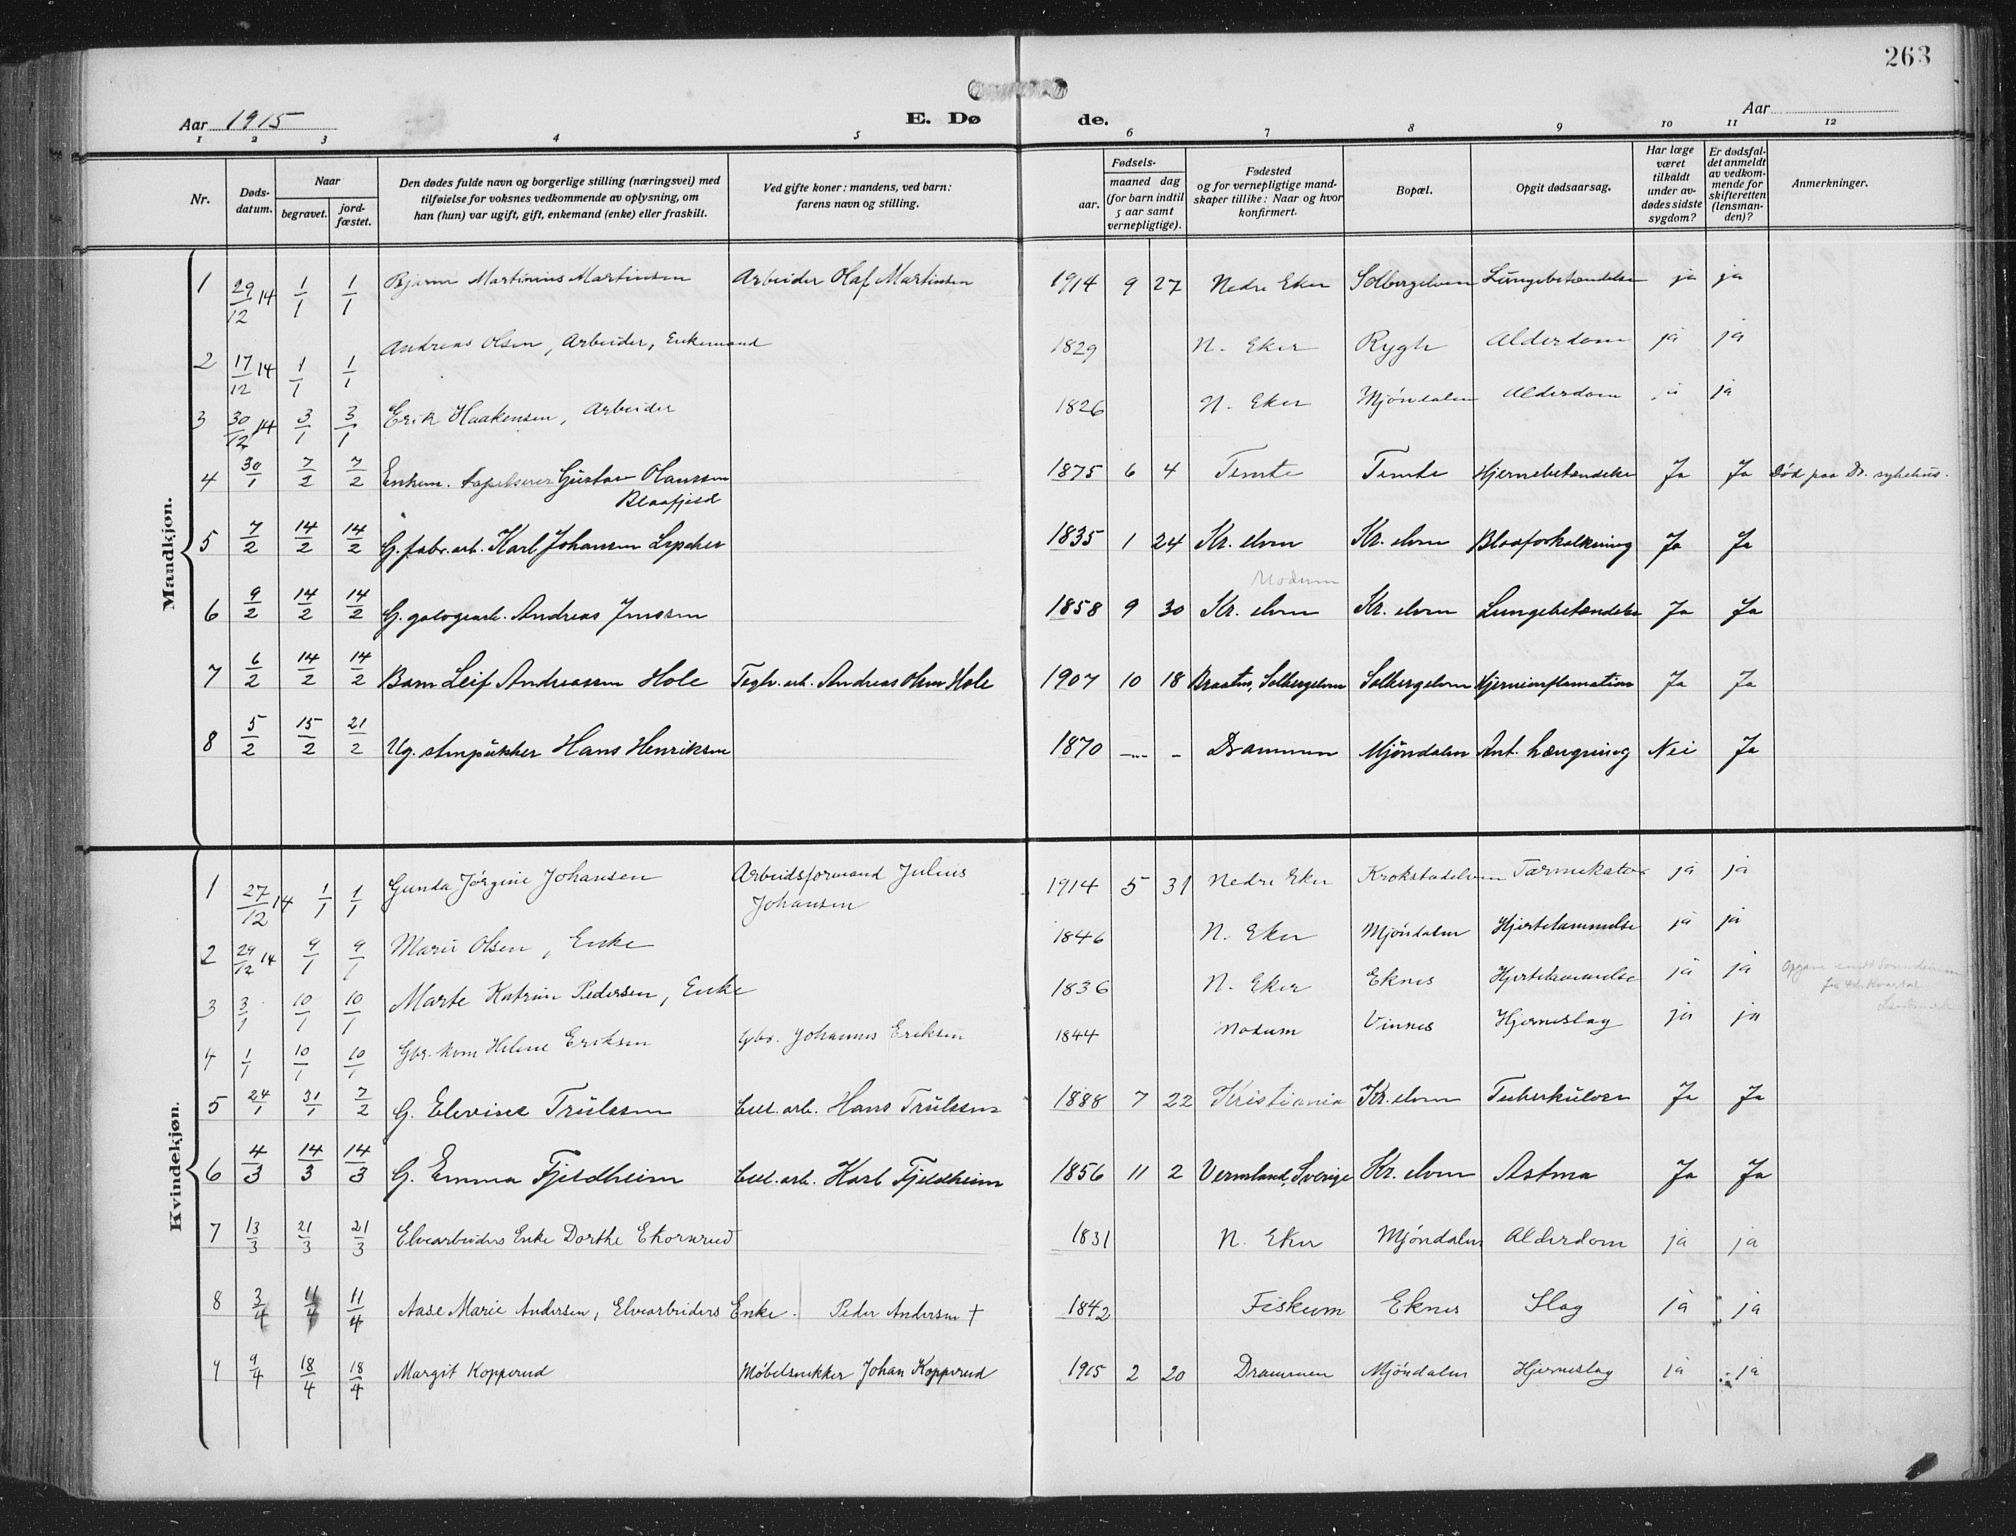 263
Aar 1915 E. Dø de. Aar
1 2 3 4 5 6 7 8 9 10 11 12
Nr. Døds-datum. Naar begravet. jord-fæstet. Den dødes fulde navn og borgerlige stilling (næringsvei) med tilføielse for voksnes vedkommende av oplysning, om han (hun) var ugift, gift, enkemand (enke) eller fraskilt. Ved gifte koner: mandens, ved barn: farens navn og stilling. Fødsels- aar. maaned dag (for barn indtil 5 aar samt vernepligtige). Fødested og for vernepligtige mandskaper tillike: Naar og hvor konfirmert. Bopæl. Opgit dødsaarsag. Har læge været tilkaldt under avdødes sidste sygdom? Er dødsfaldet anmeldt av vedkommende for skifteretten (lensmanden)? Anmerkninger.
Mandkjøn.
1 29/12 14 1/1 1/1 Bjarne Martinius Martinsen Arbeider Olaf Martinsen 1914 9 27 Nedre Eker Solbergelven Lungebetændelse ja ja
2 17/12 14 1/1 1/1 Andreas Olsen, Arbeider, Enkemand 1829 N. Eker Rygh Alderdom ja ja
3 30/12 14 3/1 3/1 Erik Haakensen, Arbeider 1826 N. Eker Mjöndalen Alderdom ja ja
4 30/1 7/2 7/2 Enkem. Gustav Hanssen Blaafjeld 1875 6 4 Temte Temte Hjernebetændelse Ja Ja Død paa Dr. sykehus.
5 7/2 14/2 14/2 G. fabr.arb. Karl Johansen 1835 1 24 Kr. elven Kr. elven Ja Ja
Modum
6 9/2 14/2 14/2 G. Andreas Jenssen 1858 9 30 Kr. elven Kr. elven Lungebetændelse Ja Ja
7 6/2 14/2 14/2 Barn Leif Andreassen Hole Teglv. arb. Andreas Olsen Hole 1907 10 18 Braaten, Solbergelven Solbergelven Hjerneinflamation Ja Ja
8 5/2 15/2 21/2 Ug. stenpukker Hans Henriksen 1870 --- - Drammen Mjöndalen Ant. hængning Nei Ja
Kvindekjøn.
1 27/12 14 1/1 1/1 Gunda Jörgine Johansen Arbeidsformand Julius Johansen 1914 5 31 Nedre Eker Krokstadelven Tarmekatar ja ja
2 29/12 14 9/1 9/1 Marie Olsen, Enke 1846 N. Eker Mjöndalen Hjertelammelse ja ja
3 3/1 10/1 10/1 Marte Katrine Pedersen, Enke 1836 N. Eker Eknes Hjertelammelse ja ja
4 1/1 10/1 10/1 Gbr. kone Helene Eriksen Gbr. Johannes Eriksen 1844 Modum Vinnes Hjerneslag ja ja
5 24/1 31/1 7/2 G. Elevine Trulssen Cell. arb. Hans Trulssen 1888 7 22 Kristiania Kr. elven Tuberkulose Ja Ja
6 4/3 14/3 14/3 G. Emma Fjeldheim Cell. arb. Karl Fjeldheim 1856 11 2 Vermland, Sverige Kr. elven Astma Ja Ja
7 13/3 21/3 21/3 Elvearbeiders Enke Dorthe Ekornrud 1831 N. Eker Mjöndalen Alderdom ja ja
8 3/4 11/4 11/4 Aase Marie Andersen, Elvearbeiders Enke. Peder Andersen + 1842 Fiskum Eknes Slag ja ja
9 9/4 18/4 18/4 Margit Kopperud Møbelsnekker Johan Kopperud 1915 2 20 Drammen Mjöndalen Hjerneslag ja ja